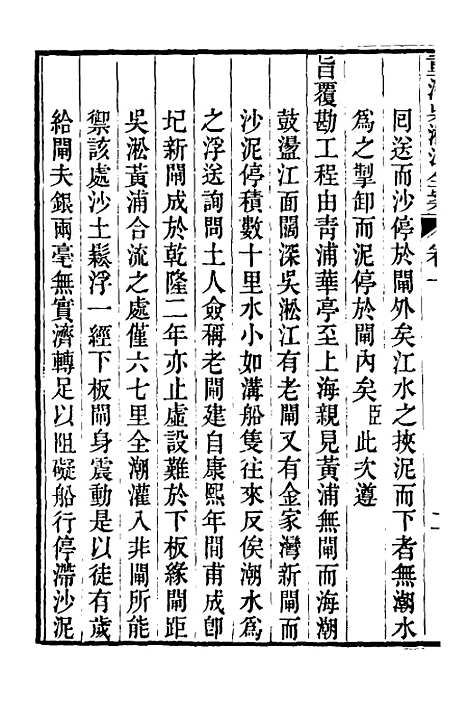 回送而沙停於閘外矣江水之挾泥而下者無潮水
爲之掣卸而泥停於閘內矣臣此次遵
旨覆勘工程由靑浦華亭至上海親見黃浦無閘而海潮
鼓盪江面闊深吳淞江有老閘又有金家灣新閘而
沙泥停積數十里水小如溝船隻往來反俟潮水爲
之浮送詢問土人僉稱老閘建自康熙年間甫成卽
圮新閘成於乾隆二年亦止虛設難於下板緣閘距
吳淞黃浦合流之處僅六七里全潮灌入非閘所能
禦該處沙土鬆浮一經下板閘身震動是以徒有歲
給閘夫銀兩毫無實濟轉足以阻礙船行停滯沙泥